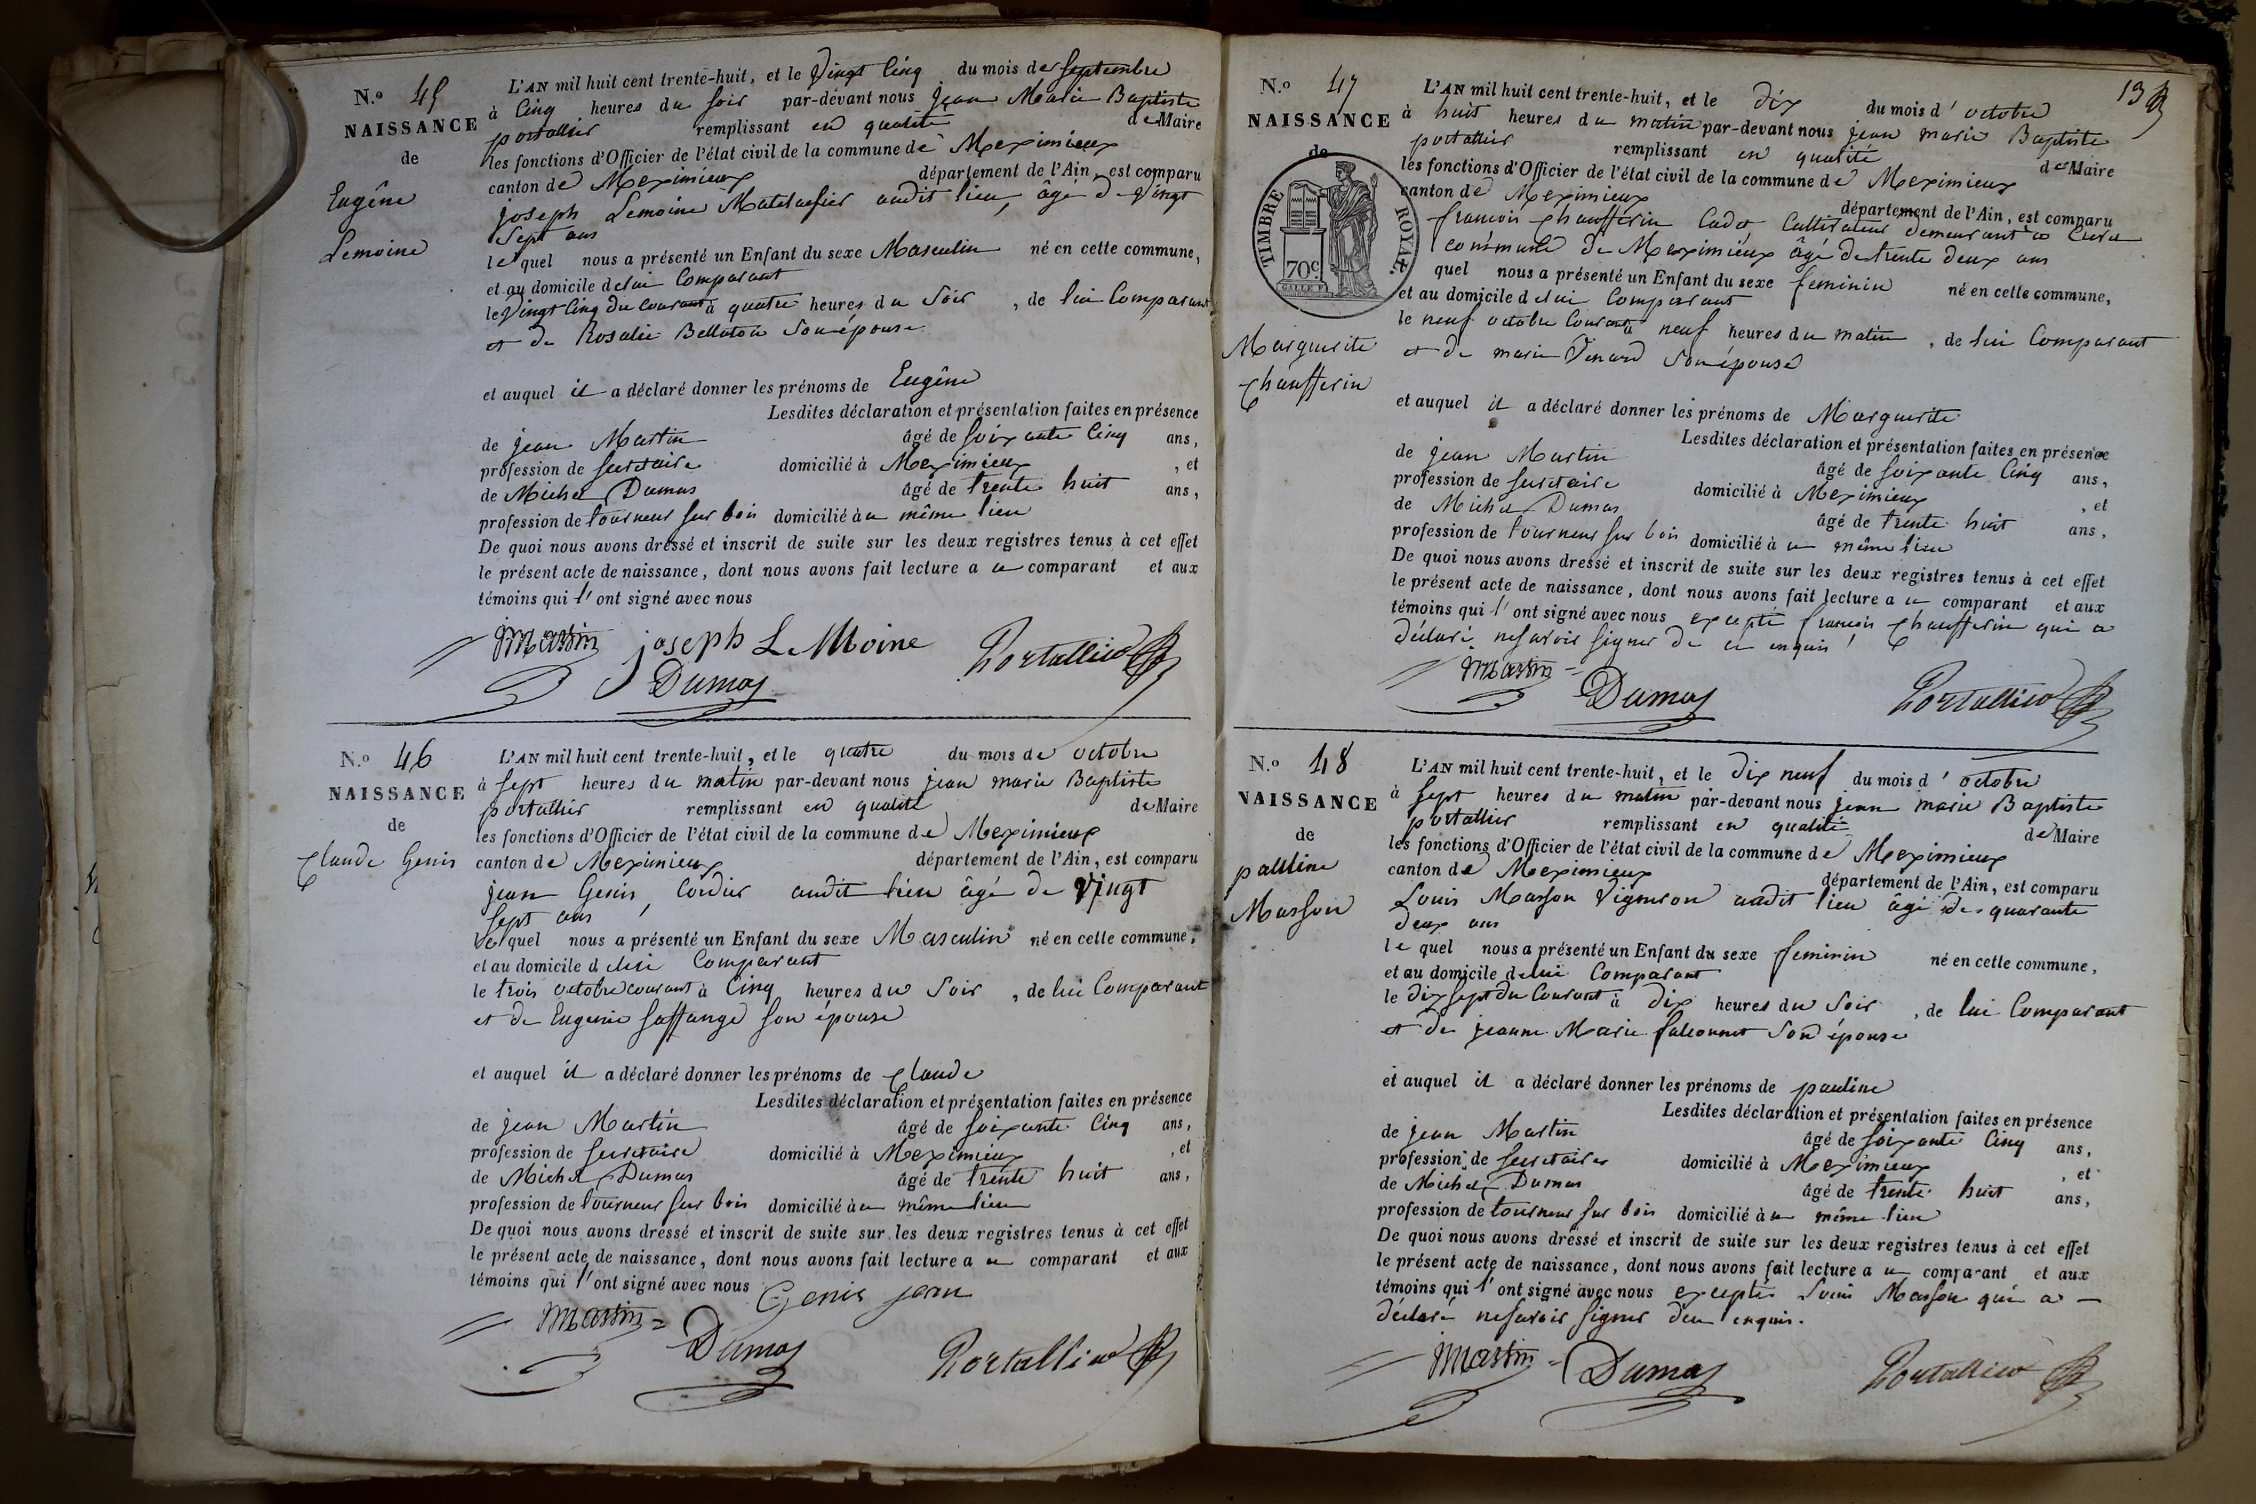 N.o 45
NAISSANCE
de
Eugêne
Lemoine
L'AN mil huit cent trente-huit, et le Vingt Cinq du mois de septembre
à Cinq heures du soir par-devant nous Jean Marie Baptiste
portallier remplissant en qualité de Maire
les fonctions d'Officier de l'état civil de la commune de Meximieux
canton de Meximieux département de l'Ain, est comparu
joseph Lemoine Matelassier audit lieu, âgé de Vingt
Sept ans
lequel nous a présenté un Enfant du sexe Masculin né en cette commune,
et au domicile de lui Comparant
le Vingt Cinq du Courant à quatre heures du Soir, de lui Comparant
et de Rosalie Bellaton Son épouse
et auquel il a déclaré donner les prénoms de Eugêne
Lesdites déclaration et présentation faites en présence
de jean Martin âgé de soixante Cinq ans,
profession de secretaire domicilié à Meximieux, et
de Michel Dumas âgé de trente huit ans,
profession de tourneur sur bois domicilié au même lieu
De quoi nous avons dressé et inscrit de suite sur les deux registres tenus à cet effet
le présent acte de naissance, dont nous avons fait lecture a ce comparant et aux
témoins qui l'ont signé avec nous
jMartin joseph LeMoine Portallier
Dumas
N.o 46
NAISSANCE
de
Claude Genis
L'AN mil huit cent trente-huit, et le quatre du mois de octobre
à sept heures du matin par-devant nous jean marie Baptiste
portallier remplissant en qualité de Maire
les fonctions d'Officier de l'état civil de la commune de Meximieux
canton de Meximieux département de l'Ain, est comparu
jean Genis, Cordier audit lieu âgé de Vingt
Sept ans
lequel nous a présenté un Enfant du sexe Masculin né en cette commune,
et au domicile de lui Comparant
le trois octobre courant à Cinq heures du Soir, de lui Comparant
et de Eugenie Saffange son épouse
et auquel il a déclaré donner les prénoms de Claude
Lesdites déclaration et présentation faites en présence
de jean Martin âgé de soixante Cinq ans,
profession de secretaire domicilié à Meximieux, et
de Michel Dumas âgé de trente huit ans,
profession de tourneur sur bois domicilié au même lieu
De quoi nous avons dressé et inscrit de suite sur les deux registres tenus à cet effet
le présent acte de naissance, dont nous avons fait lecture a ce comparant et aux
témoins qui l'ont signé avec nous Genis jean
jMartin Dumas Portallier
13
N.o 47
NAISSANCE
de
TIMBRE ROYAL
70c
Marguerite
Chaufferin
L'AN mil huit cent trente-huit, et le dix du mois d'octobre
à huit heures du matin par-devant nous jean marie Baptiste
portallier remplissant en qualité de Maire
les fonctions d'Officier de l'état civil de la commune de Meximieux
canton de Meximieux département de l'Ain, est comparu
francois Chaufferin Cadet, Cultivateur demeurant a
commune de Meximieux âgé de trente deux ans
quel nous a présenté un Enfant du sexe feminin né en cette commune,
et au domicile de lui Comparant
le neuf octobre Courant à neuf heures du matin, de lui Comparant
et de marie Venard Son épouse
et auquel il a déclaré donner les prénoms de Marguerite
Lesdites déclaration et présentation faites en présence
de jean Martin âgé de soixante Cinq ans,
profession de secretaire domicilié à Meximieux, et
de Michel Dumas âgé de trente huit ans,
profession de tourneur sur bois domicilié à ce même lieu
De quoi nous avons dressé et inscrit de suite sur les deux registres tenus à cet effet
le présent acte de naissance, dont nous avons fait lecture a ce comparant et aux
témoins qui l'ont signé avec nous excepté francois Chaufferin qui a
déclaré ne savoir signer de ce enquis
jMartin Dumas Portallier
N.o 48
NAISSANCE
de
pauline
Masson
L'AN mil huit cent trente-huit, et le dix neuf du mois d'octobre
à sept heures du matin par-devant nous jean marie Baptiste
portallier remplissant en qualité de Maire
les fonctions d'Officier de l'état civil de la commune de Meximieux
canton de Meximieux département de l'Ain, est comparu
Louis Masson Vigneron audit lieu âgé de quarante
deux ans
le quel nous a présenté un Enfant du sexe feminin né en cette commune,
et au domicile de lui Comparant
le dix sept du Courant à dix heures du Soir, de lui Comparant
et de jeanne Marie falconnet Son épouse
et auquel il a déclaré donner les prénoms de pauline
Lesdites déclaration et présentation faites en présence
de jean Martin âgé de soixante Cinq ans,
profession de secretaire domicilié à Meximieux, et
de Michel Dumas âgé de trente huit ans,
profession de tourneur sur bois domicilié à ce même lieu
De quoi nous avons dressé et inscrit de suite sur les deux registres tenus à cet effet
le présent acte de naissance, dont nous avons fait lecture a ce comparant et aux
témoins qui l'ont signé avec nous excepté Louis Masson qui a
déclaré ne savoir signer de ce enquis.
jMartin Dumas Portallier